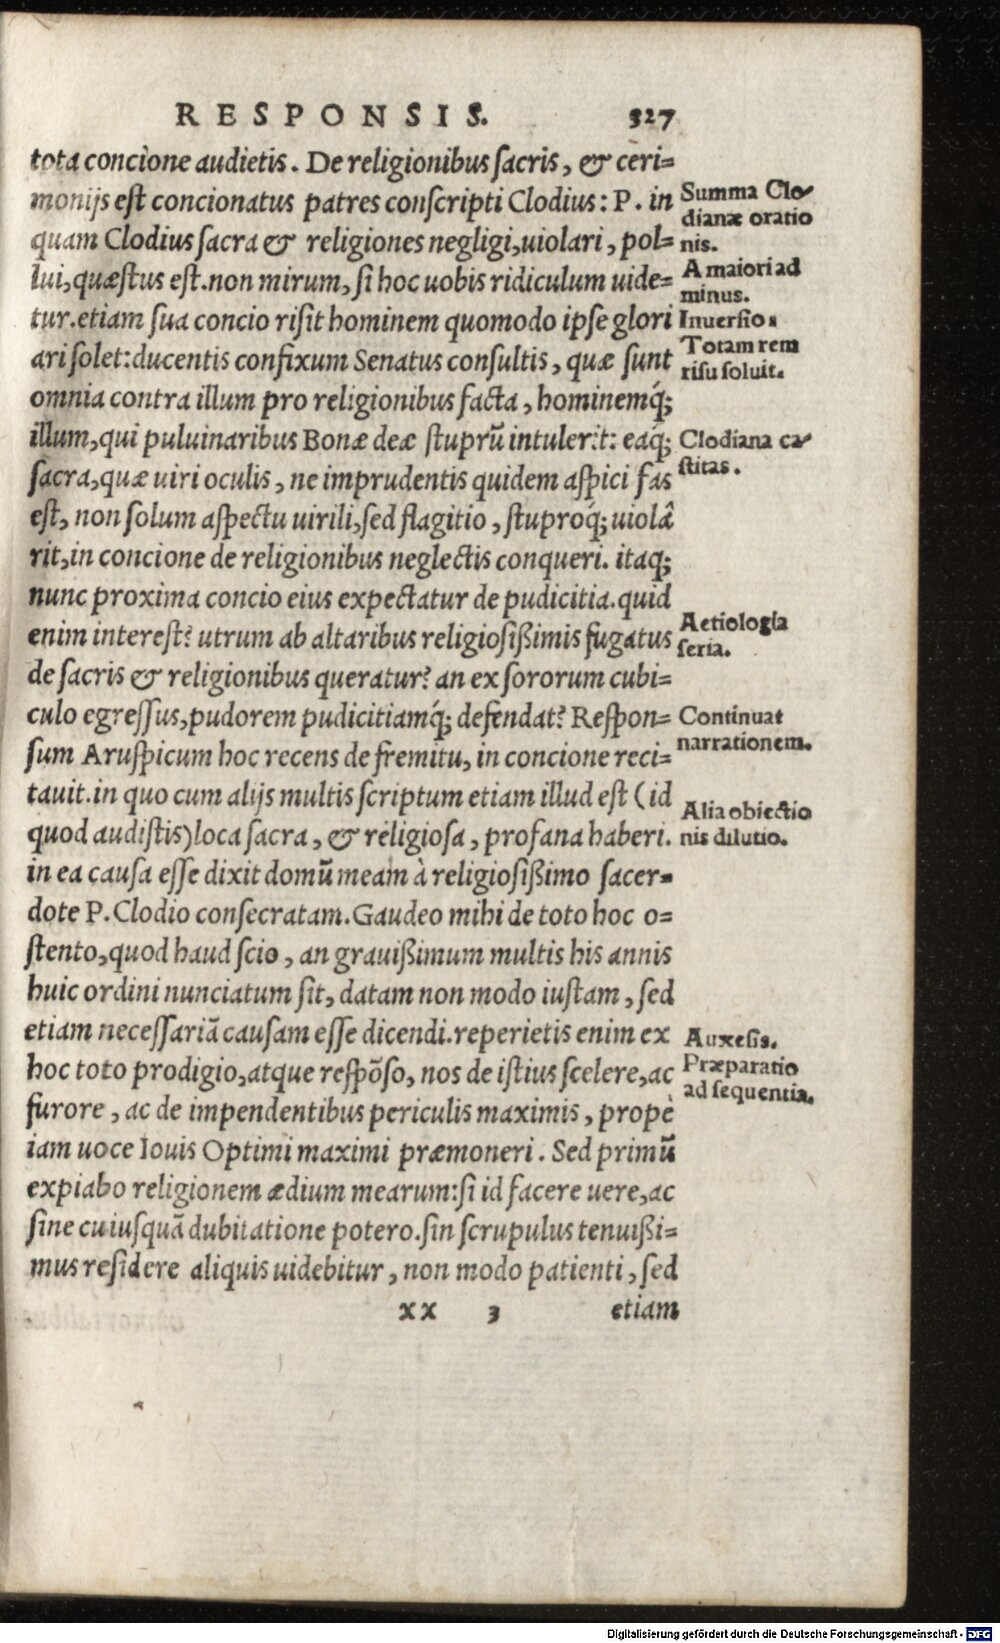 RESPONSIS. 327
tota concione audietis. De religionibus sacris, & ceri=
monijs est concionatus patres conscripti Clodius: P. in
quam Clodius sacra & religiones negligi, uiolari, pol=
lui, quæstus est. non mirum, si hoc uobis ridiculum uide=
tur. etiam sua concio risit hominem quomodo ipse glori
ari solet: ducentis confixum Senatus consultis, quæ sunt
omnia contra illum pro religionibus facta, hominemq́;
illum, qui puluinaribus Bonæ deæ stuprũ intulerit: eaq́;
sacra, quæ uiri oculis, ne imprudentis quidem aspici fas
est, non solum aspectu uirili, sed flagitio, stuproq́; uiolâ
rit, in concione de religionibus neglectis conqueri. itaq;
nunc proxima concio eius expectatur de pudicitia. quid
enim interest? utrum ab altaribus religiosißimis fugatus
de sacris & religionibus queratur? an ex sororum cubi=
culo egressus, pudorem pudicitiamq́; defendat? Respon=
sum Aruspicum hoc recens de fremitu, in concione reci=
tauit. in quo cum alijs multis scriptum etiam illud est (id
quod audistis) loca sacra, & religiosa, profana haberi.
in ea causa esse dixit domũ meam à religiosißimo sacer=
dote P. Clodio consecratam. Gaudeo mihi de toto hoc o=
stento, quod haud scio, an grauißimum multis his annis
huic ordini nunciatum sit, datam non modo iustam, sed
etiam necessariã causam esse dicendi. reperietis enim ex
hoc toto prodigio, atque respõso, nos de istius scelere, ac
furore, ac de impendentibus periculis maximis, propè
iam uoce Iouis Optimi maximi præmoneri. Sed primũ
expiabo religionem ædium mearum: si id facere uere, ac
sine cuiusquã dubitatione potero. sin scrupulus tenuißi=
mus residere aliquis uidebitur, non modo patienti, sed
xx 3 etiam
Summa Clo=
dianæ oratio
nis.
A maiori ad
minus.
Inuersio.
Totam rem
risu soluit.
Clodiana ca=
stitas.
Aetiologia
seria.
Continuat
narrationem.
Alia obiectio
nis dilutio.
Auxesis.
Præparatio
ad sequentia.
Digitalisierung gefördert durch die Deutsche Forschungsgemeinschaft - DFG